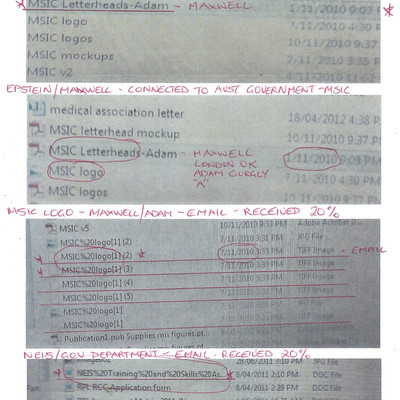 * MSIC Letterheads-Adam - MAXWELL 1/11/2010 9:03 *
MSIC logo 7/11/2010 4:30 P
MSIC logos 10/11/2010 9:37
MSIC mockups 7/11/2010 3:35 P
MSIC v2
EPSTEIN/MAXWELL - CONNECTED TO AUST GOVERNMENT - MSIC
medical association letter 18/04/2012 4:38 P
MSIC letterhead mockup 10/11/2010 9:37 P
MSIC Letterheads-Adam - MAXWELL 1/11/2010 9:03 PM
LONDON UK
MSIC logo ADAM GURGLY 7/11/2010 4:30 PM
"A"
MSIC logos 10/11/2010 9:37
MSIC LOGO - MAXWELL/ADAM - EMAIL - RECEIVED 20%
MSIC v5 10/11/2010 9:33 PM Adobe Acrobat D...
MSIC%20logo[1] (2) 7/11/2010 3:31 PM TIFF Image
* MSIC%20logo[1] (2) * 7/11/2010 3:31 PM TIFF Image - EMAIL
* MSIC%20logo[1] (3) 7/11/2010 3:33 PM TIFF Image
MSIC%20logo[1] (4) 7/11/2010 3:33 PM TIFF Image
MSIC%20logo[1] (5) 7/11/2010 3:33 PM TIFF Image
MSIC%20logo[1] TIFF Image
MSIC%20logo[1] TIFF Image
Publication1.pub Supplies mu figures.pt...
NEIS/GOV DEPARTMENT - EMAIL - RECEIVED 20%
28/06/2011 3:10 PM JPG File
* NEIS%20Training%20and%20Skills%20As... * 8/04/2011 2:10 PM DOC File
RPL RCC Application form 8/04/2011 2:29 PM DOC File